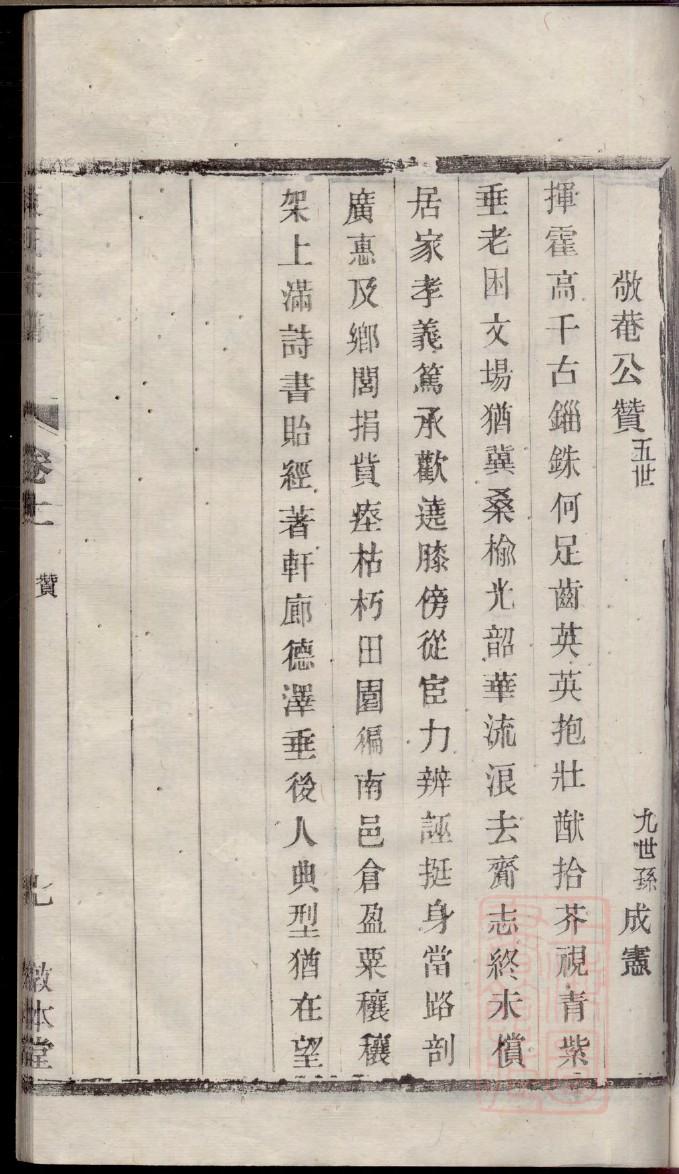 敬菴公贊 五世 九世孫 成憲
揮霍高千古錙銖何足齒英英抱壯猷拾芥視青紫
垂老困文場猶冀桑榆光韶華流浪去齎志終未償
居家孝義篤承歡遶膝傍從宦力辨誣挺身當路剖
廣惠及鄉閭捐貲瘞枯朽田園徧南邑倉盈粟穰穰
架上滿詩書貽經著軒廊德澤垂後人典型猶在望
卷十 贊 敬本堂